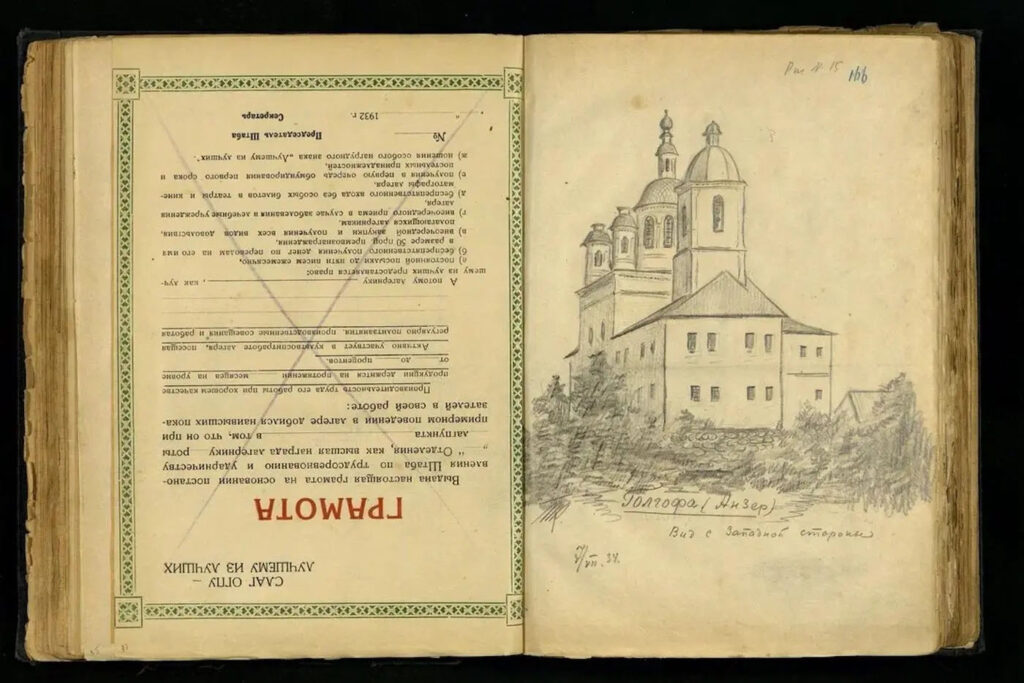 СЛАГ ОГПУ —
ЛУЧШЕМУ ИЗ ЛУЧШИХ
ГРАМОТА
Выдана настоящая грамота на основании постано-
вления Штаба по трудсоревнованию и ударничеству
" " Отделения, как высшая награда лагернику роты
лагпункта в том, что он при
примерном поведении в лагере добился наивысших пока-
зателей в своей работе:
Производительность труда его работы при хорошем качестве
продукции держится на протяжении месяцев на уровне
от до процентов.
Активно участвует в культвоспитработе лагеря, посещая
регулярно политзанятия, производственные совещания и работая
А потому лагернику , как луч-
шему из лучших предоставляется право:
а) постоянной посылки до пяти писем ежемесячно,
б) беспрепятственного получения денег по переводам на его имя
в размере 50 проц. премвознаграждения,
в) внеочередной закупки и получения всех видов довольствия,
полагающихся лагерникам,
г) внеочередного приема в случае заболевания в лечебные учреждения
лагеря,
д) беспрепятственного входа без особых билетов в театры и кине-
матографы лагеря,
е) получения в первую очередь обмундирования первого срока и
постельных принадлежностей,
ж) ношения особого нагрудного знака „Лучшему из лучших".
№ Председатель Штаба
" " 1932 г. Секретарь
Рис № 15
166
Голгофа (Анзер)
Вид с Западной стороны
7/VII. 34.